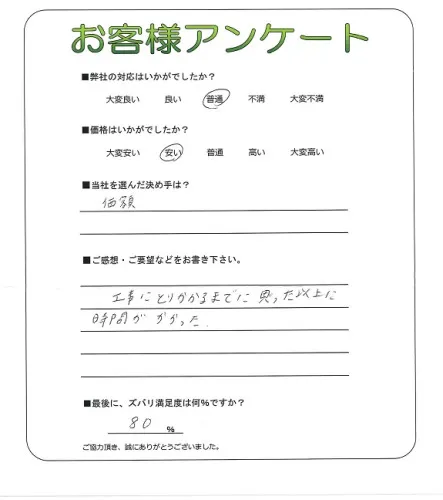 お客様アンケート
■弊社の対応はいかがでしたか？
大変良い 良い 普通 不満 大変不満
■価格はいかがでしたか？
大変安い 安い 普通 高い 大変高い
■当社を選んだ決め手は？
価額
■ご感想・ご要望などをお書き下さい。
工事にとりかかるまでに思った以上に
時間がかかった.
■最後に、ズバリ満足度は何％ですか？
80 ％
ご協力頂き、誠にありがとうございました。